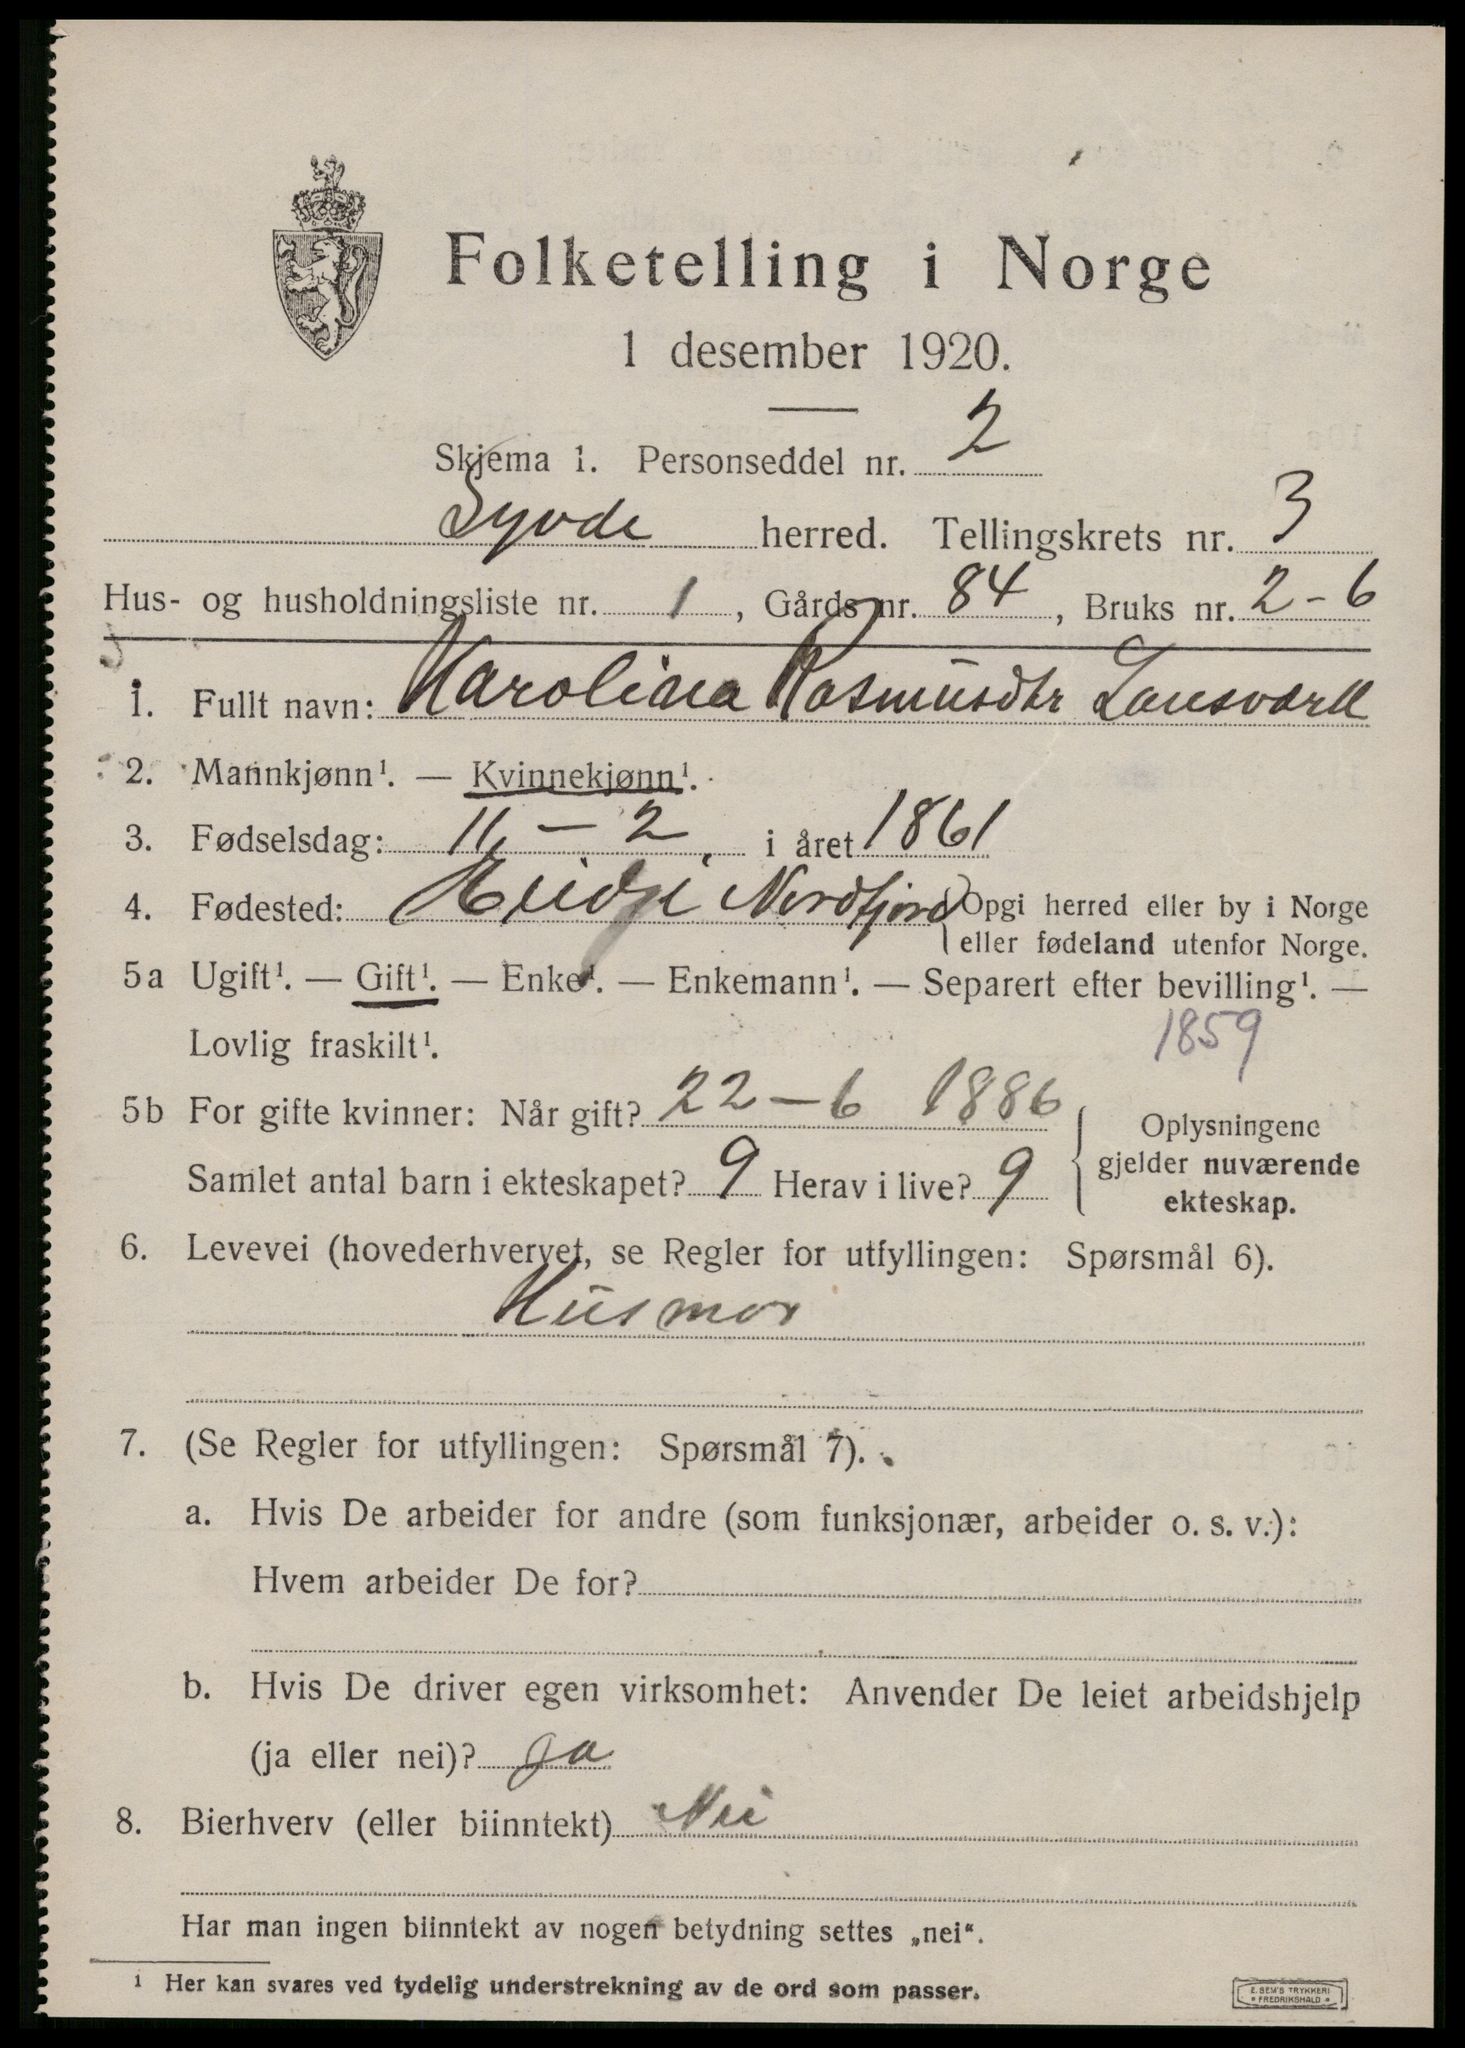 Folketelling i Norge
1 desember 1920.
Skjema 1. Personseddel nr. 2
Syvde herred. Tellingskrets nr. 3
Hus- og husholdningsliste nr. 1, Gårds nr. 84, Bruks nr. 2-6
1. Fullt navn: Karolina Rasmusdtr
2. Mannkjønn¹. — Kvinnekjønn¹.
3. Fødselsdag: 11. – 2. i året 1861
4. Fødested: Nordfjord Opgi herred eller by i Norge
eller fødeland utenfor Norge.
5a Ugift¹. — Gift¹. — Enke¹. — Enkemann¹. — Separert efter bevilling¹. —
Lovlig fraskilt¹.
1859
5b For gifte kvinner: Når gift? 22–6 1886
Samlet antal barn i ekteskapet? 9 Herav i live? 9
Oplysningene
gjelder nuværende
ekteskap.
6. Levevei (hovederhvervet, se Regler for utfyllingen: Spørsmål 6).
Husmor
7. (Se Regler for utfyllingen: Spørsmål 7).
a. Hvis De arbeider for andre (som funksjonær, arbeider o. s. v.):
Hvem arbeider De for?
b. Hvis De driver egen virksomhet: Anvender De leiet arbeidshjelp
(ja eller nei)? Ja
8. Bierhverv (eller biinntekt) Nei
Har man ingen biinntekt av nogen betydning settes „nei“.
¹ Her kan svares ved tydelig understrekning av de ord som passer.
E. SEM'S TRYKKERI
FREDRIKSHALD